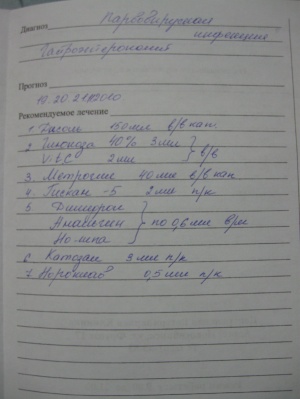 Диагноз Парвовирусная
инфекция
Гастроэнтероколит
Прогноз
Рекомендуемое лечение
1. Дисоль 150 мл в/в кап.
2. Глюкоза 40% 3 мл
Vit C 2 мл } в/в
3. Метрогил 40 мл в/в кап
4. Гискан-5 2 мл п/к
5. Димедрол
Анальгин } по 0,6 мл в/м
Но-шпа
6 Катозал 3 мл п/к
7. 0,5 мл п/к